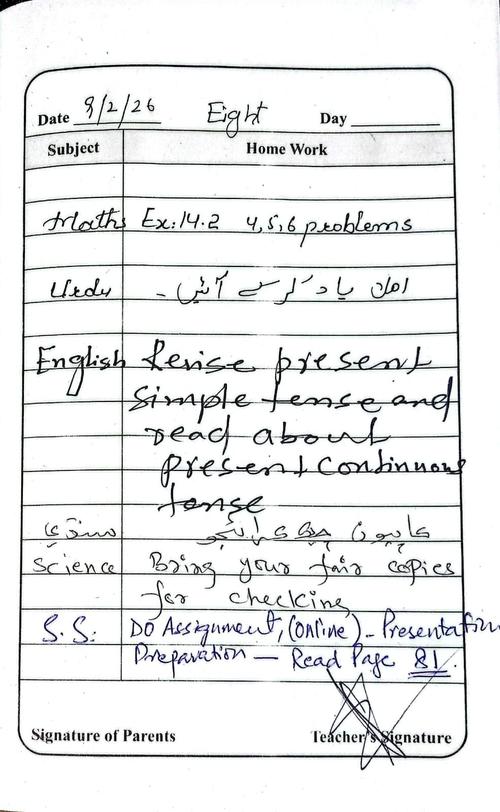 Date 9/2/26 Eight Day
Subject Home Work
Maths Ex:14.2 4,5,6 problems
Urdu املا یاد کر کے آئیں ۔
English Revise present
simple tense and
read about
present continuous
tense
سنڌي ڪاپيون
Science Bring your fair copies
for checking
S.S: DO Assignment, (Online) - Presentation
Preparation — Read Page 81.
Signature of Parents Teacher's Signature